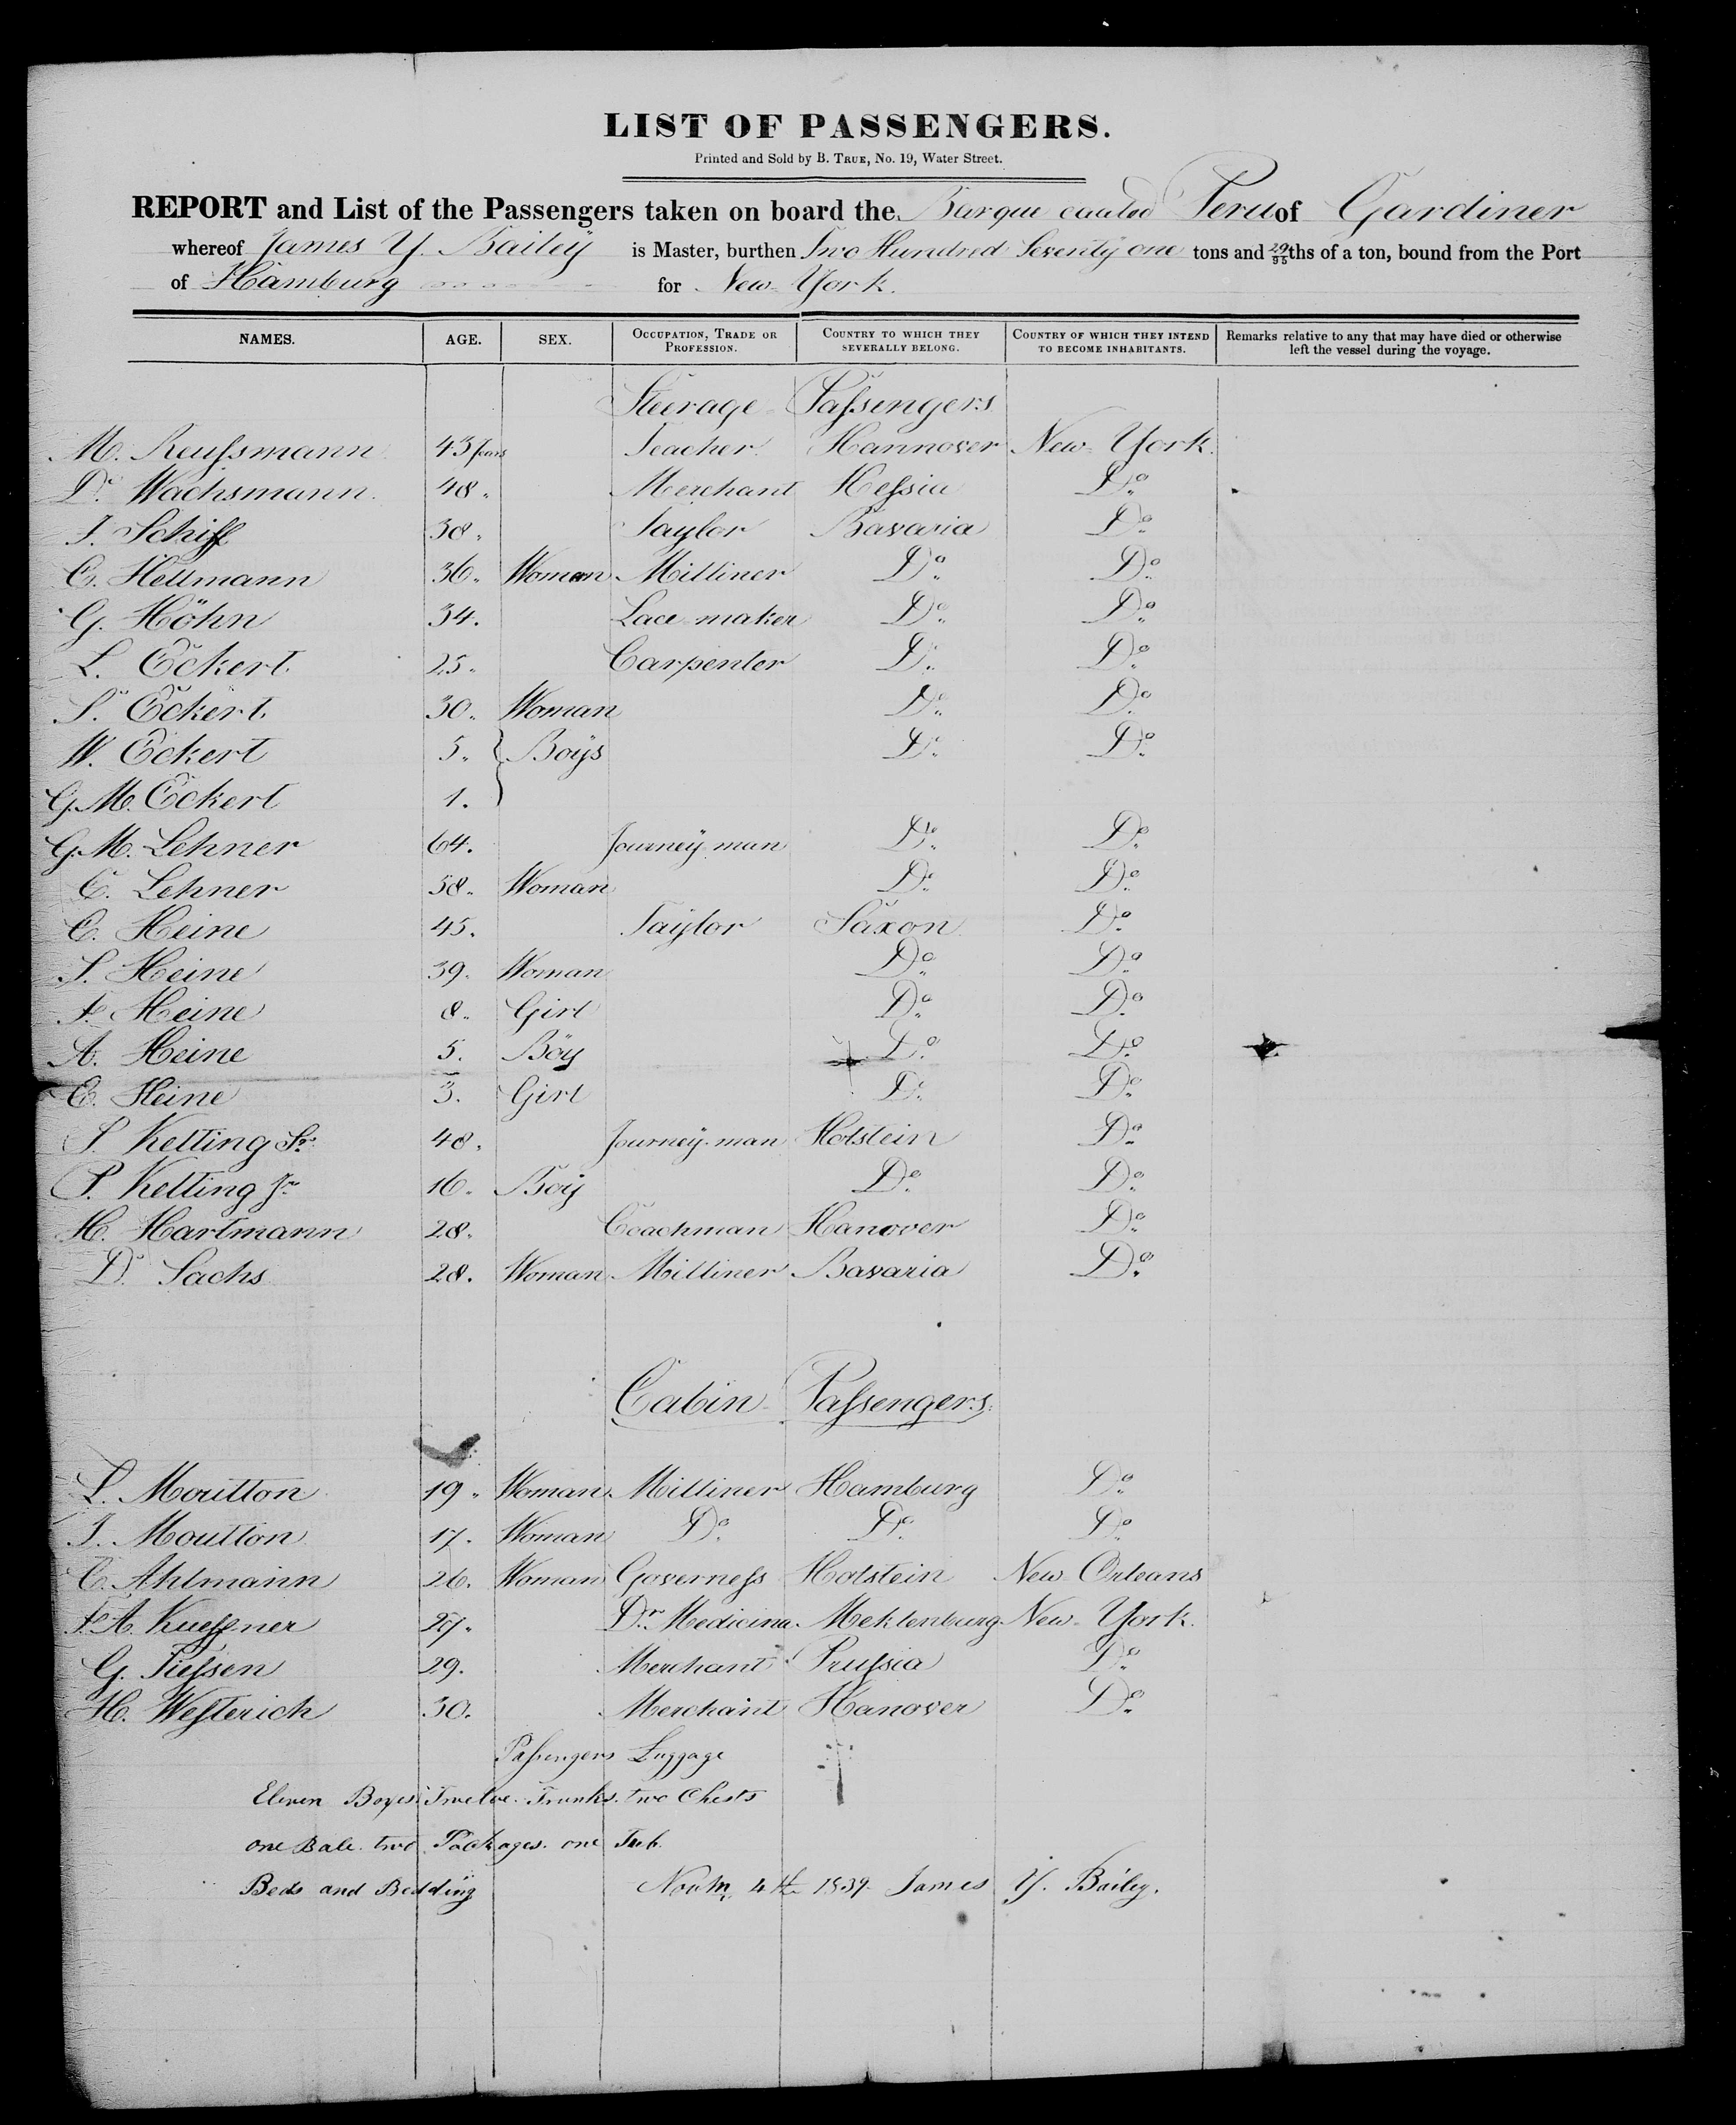 LIST OF PASSENGERS.
Printed and Sold by B. TRUE, No. 19, Water Street.
REPORT and List of the Passengers taken on board the Barque called Peru of Gardiner
whereof James Y. Bailey is Master, burthen Two Hundred Seventy one tons and 29/95ths of a ton, bound from the Port
of Hamburg for New York.
NAMES. AGE. SEX. OCCUPATION, TRADE OR PROFESSION. COUNTRY TO WHICH THEY SEVERALLY BELONG. COUNTRY OF WHICH THEY INTEND TO BECOME INHABITANTS. Remarks relative to any that may have died or otherwise left the vessel during the voyage.
Steerage Paſsengers
M. Reuſsmann 43 years Teacher Hannover New York.
D. Wachsmann 48 Merchant Heſsia Do.
J. Schiff 38 Taylor Bavaria Do.
C. Hellmann 36 Woman Milliner Do. Do.
G. Höhn 34. Lace maker Do. Do.
L. Eckert 25 Carpenter Do. Do.
S. Eckert 30. Woman Do. Do.
W. Eckert 5. } Boys Do. Do.
G.M. Eckert 1.
G.M. Lehner 64. Journey man Do. Do.
C. Lehner 58. Woman Do. Do.
C. Heine 45. Taylor Saxon Do.
S. Heine 39. Woman Do. Do.
F. Heine 8. Girl Do. Do.
A. Heine 5. Boy Do. Do.
E. Heine 3. Girl Do. Do.
P. Kelting Sr. 48. Journey man Holstein Do.
P. Kelting Jr. 16. Boy Do. Do.
H. Hartmann 28. Coachman Hanover Do.
D. Sachs 28. Woman Milliner Bavaria Do.
Cabin Paſsengers
L. Moutton 19. Woman Milliner Hamburg Do.
J. Moutton 17. Woman Do. Do. Do.
C. Ahlmann 26. Woman Governeſs Holstein New Orleans
F.A. Kueſsner 27. Dr. Medicina. Meklenburg New York.
G. Tieſsen 29. Merchant Pruſsia Do.
H. Weſterich 30. Merchant Hanover Do.
Paſsengers Luggage
Eleven Boxes. Twelve Trunks. two Chests
one Bale. two Packages. one Tub.
Beds and Bedding Novm. 4th 1839 James Y. Bailey.